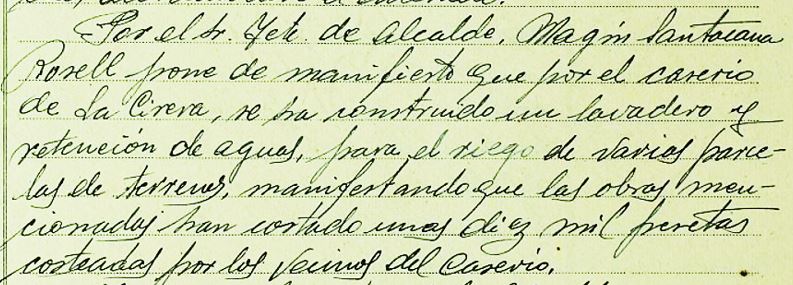 Por el Sr. Tete. de Alcalde, Magín Santacana
Rosell pone de manifiesto que por el caserio
de La Cirera, se ha construido un lavadero y
retención de aguas, para el riego de varias parce-
las de terrenos, manifestando que las obras men-
cionadas han costado unas diez mil pesetas
costeadas por los vecinos del Caserio.